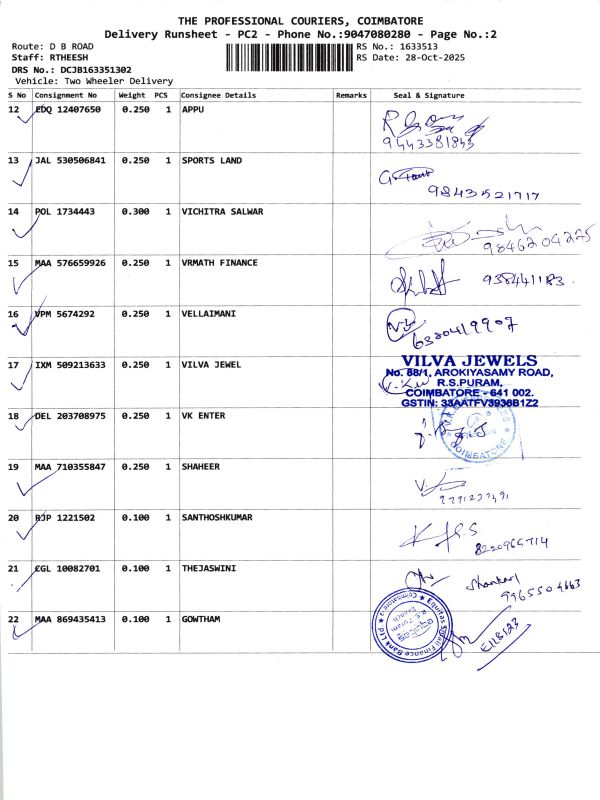 THE PROFESSIONAL COURIERS, COIMBATORE
Delivery Runsheet - PC2 - Phone No.:9047080280 - Page No.:2
Route: D B ROAD
RS No.: 1633513
Staff: RTHEESH
RS Date: 28-Oct-2025
DRS No.: DCJB163351302
Vehicle: Two Wheeler Delivery
S No Consignment No Weight PCS Consignee Details Remarks Seal & Signature
12 EDQ 12407650 0.250 1 APPU
9443381845
13 JAL 530506841 0.250 1 SPORTS LAND
9843521717
14 POL 1734443 0.300 1 VICHITRA SALWAR
9846204225
15 MAA 576659926 0.250 1 VRMATH FINANCE
938441183
16 VPM 5674292 0.250 1 VELLAIMANI
6380419907
17 IXM 509213633 0.250 1 VILVA JEWEL
VILVA JEWELS
No. 88/1, AROKIYASAMY ROAD,
R.S.PURAM,
COIMBATORE - 641 002.
GSTIN: 33AATFV3936B1Z2
18 DEL 203708975 0.250 1 VK ENTER
COIMBATORE
19 MAA 710355847 0.250 1 SHAHEER
20 RJP 1221502 0.100 1 SANTHOSHKUMAR
8220965714
21 CGL 10082701 0.100 1 THEJASWINI
Shankar
9965504663
22 MAA 869435413 0.100 1 GOWTHAM
Equitas Small Finance Bank Ltd
E118123